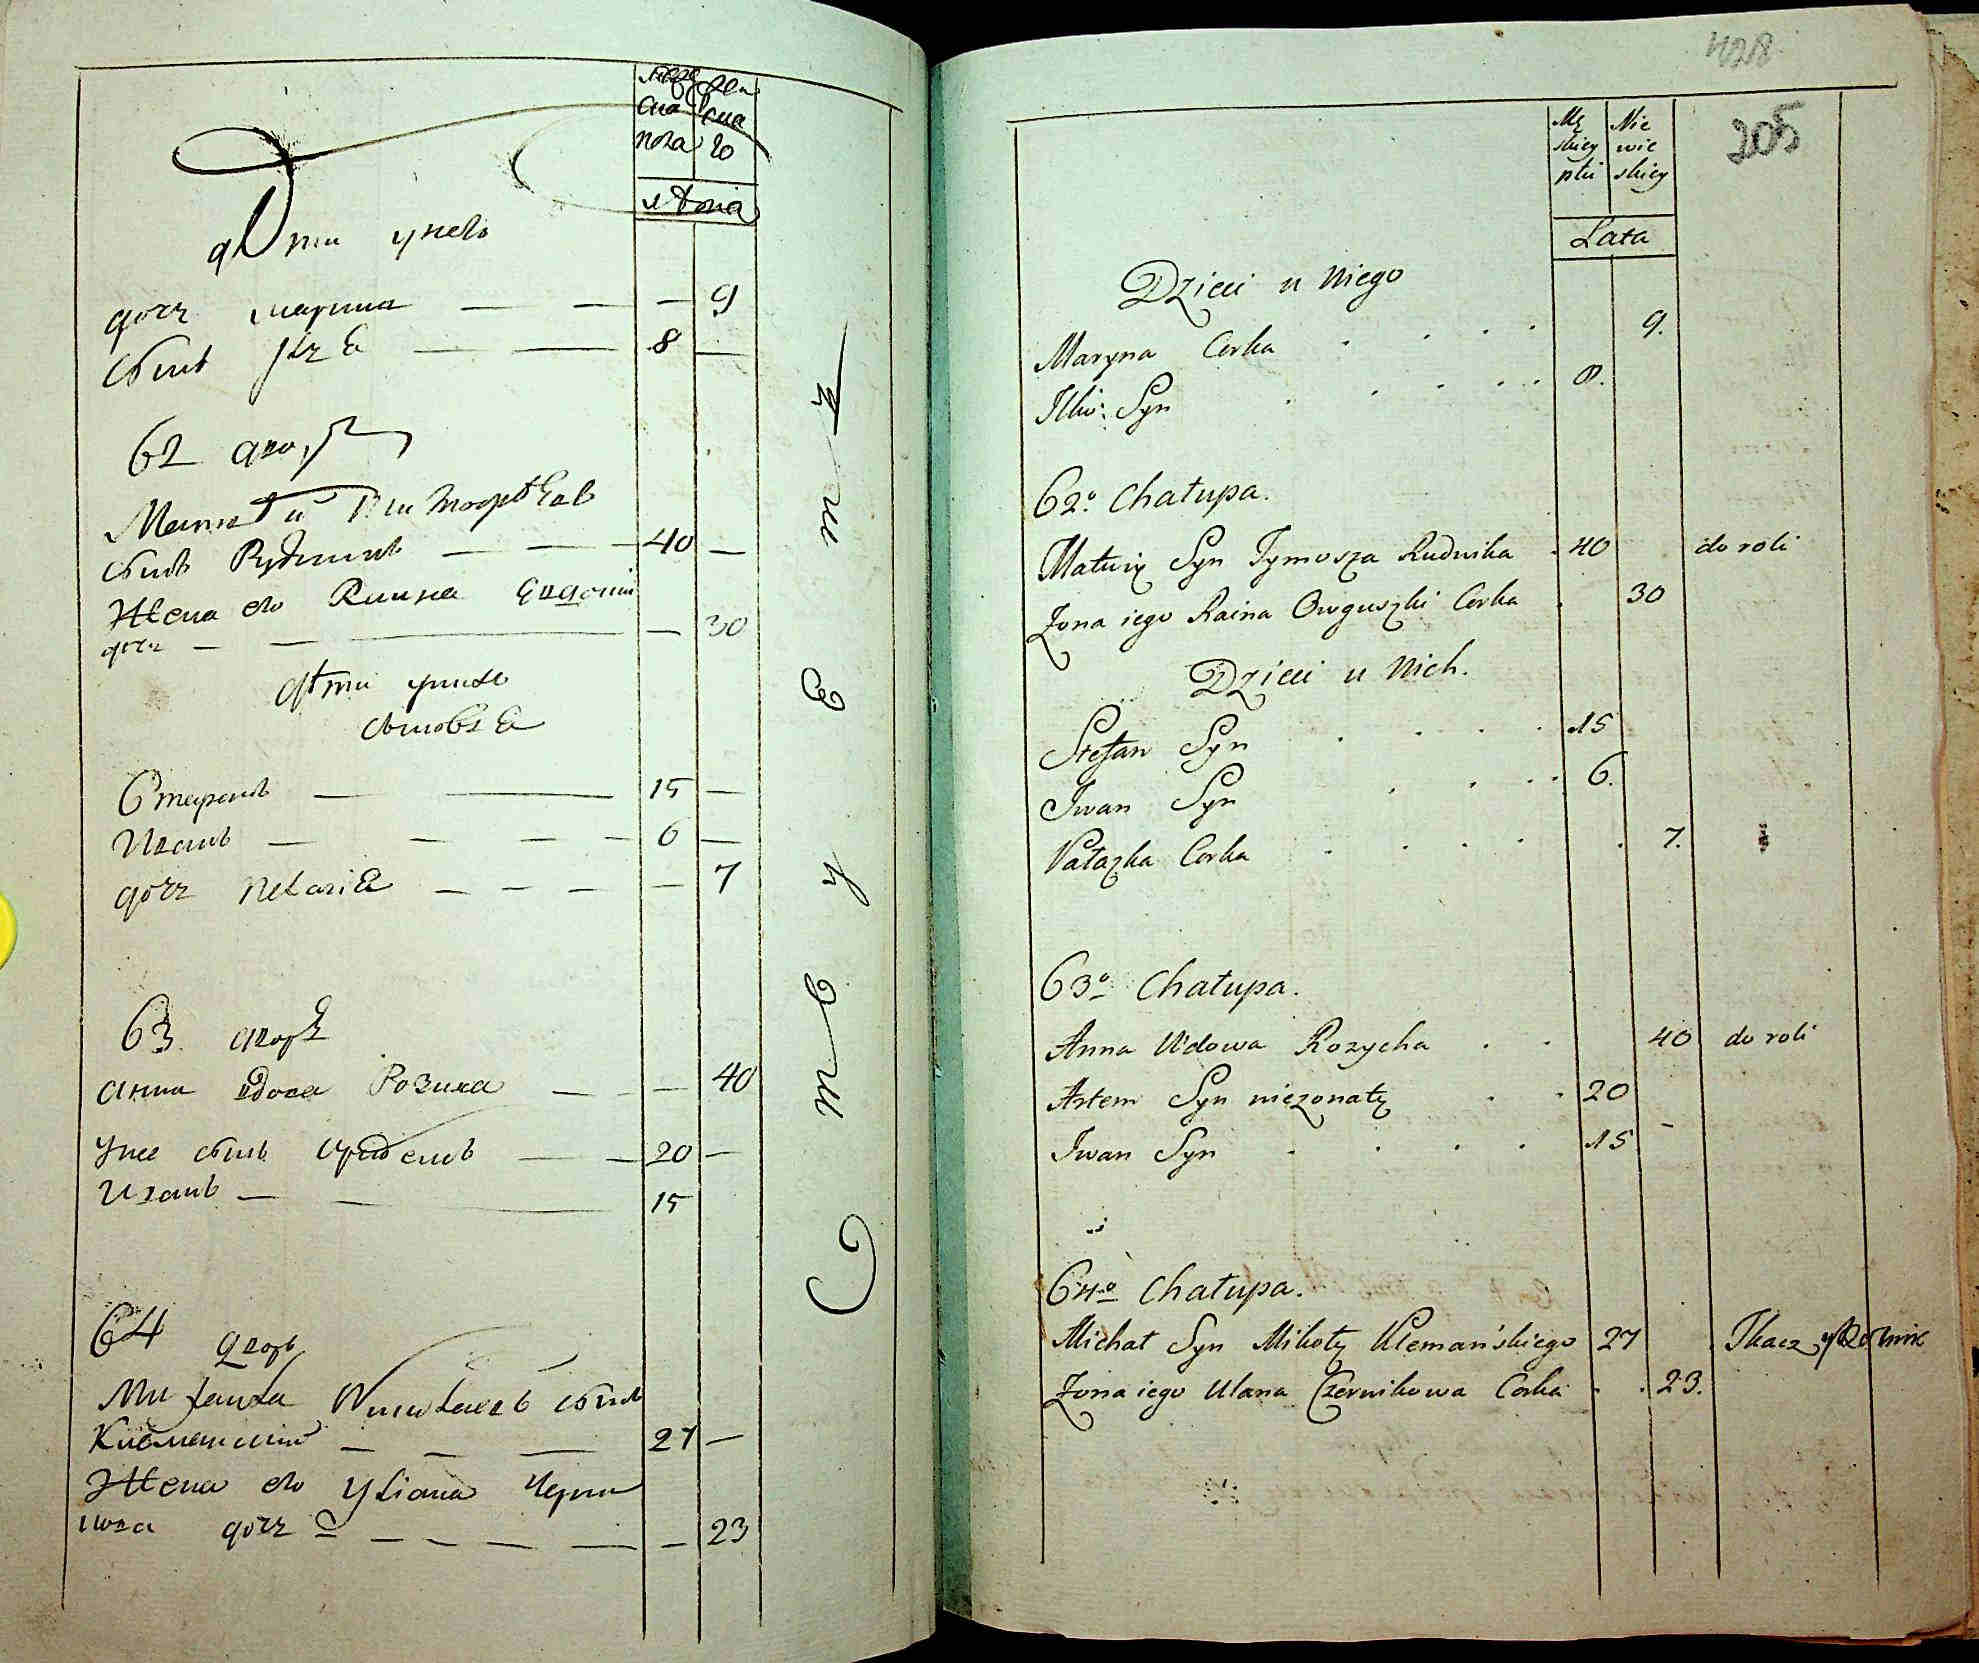 мужеска пола
женскаго
лѣта
дѣти у него
дочь марина — — — 9
сынъ Илья — — 8 —
62 дворъ
Матвѣй Тимоѳѣевъ
сынъ Рудникъ — — — 40 —
Жена его Раина
дочь — — — 30
дѣти у нихъ
сыновья
Стефанъ — — 15 —
Иванъ — — — — 6 —
дочь Пелагія — — — — 7
63 дворъ
анна вдова Розиха — — — 40
у нее сынъ артемъ — — 20 —
Иванъ — — 15
64 дворъ
Михайла Николаевъ сынъ
— — — 27 —
Жена его Уліана Черни
кова дочь — — — — — — 23
428
205
Mę skiey płci
Nie wie skiey
Lata
Dzieci u Niego
Maryna Corka . . . . 9.
Illia Syn . . . . . 8.
62o Chałupa.
Matwiy Syn Tymosza Rudnika . 40 do roli
Zona iego Raina Owguszki Corka . 30
Dzieci u Nich.
Stefan Syn . . . . 15
Iwan Syn . . . . 6.
Pałazka Corka . . . . . 7.
63o Chałupa.
Anna Wdowa Rozycha . . 40 do roli
Artem Syn niezonaty . . 20
Iwan Syn . . . . 15 -
64o Chałupa.
Michał Syn Mikoły Klemańskiego 27 . Tkacz
Zona iego Ulana Czernikowa Corka . . 23.